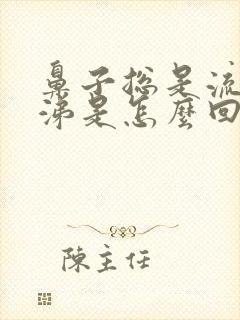 鼻子总是流
涕是怎麼回
陳主任